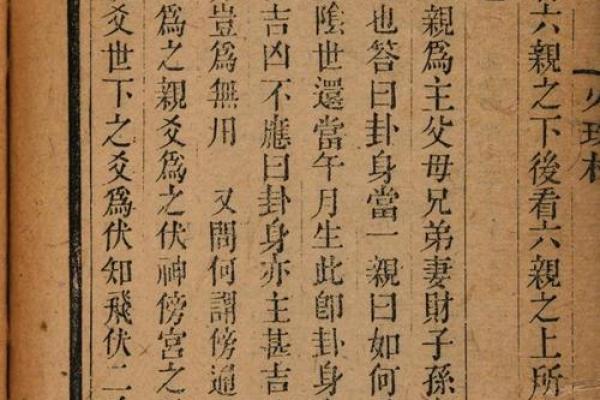 火珠林
六親之下後看六親之上所
親爲主父母兄弟妻財子孫
也答曰卦身當一親曰如何
陰世還當午月生此卽卦身
吉凶不應曰卦身亦主甚吉
豈爲無用 又問何謂傍通
爲之親爻爲之伏神傍宮之
爻世下之爻爲伏知飛伏二